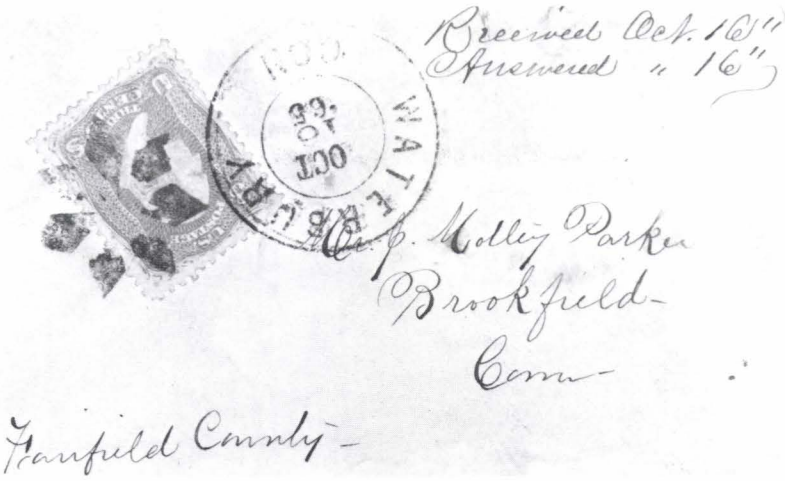 Received Oct. 16"
Answered " 16"
WATERBURY CON
OCT
'65
Molley Parker
Brookfield-
Conn-
Fairfield County-